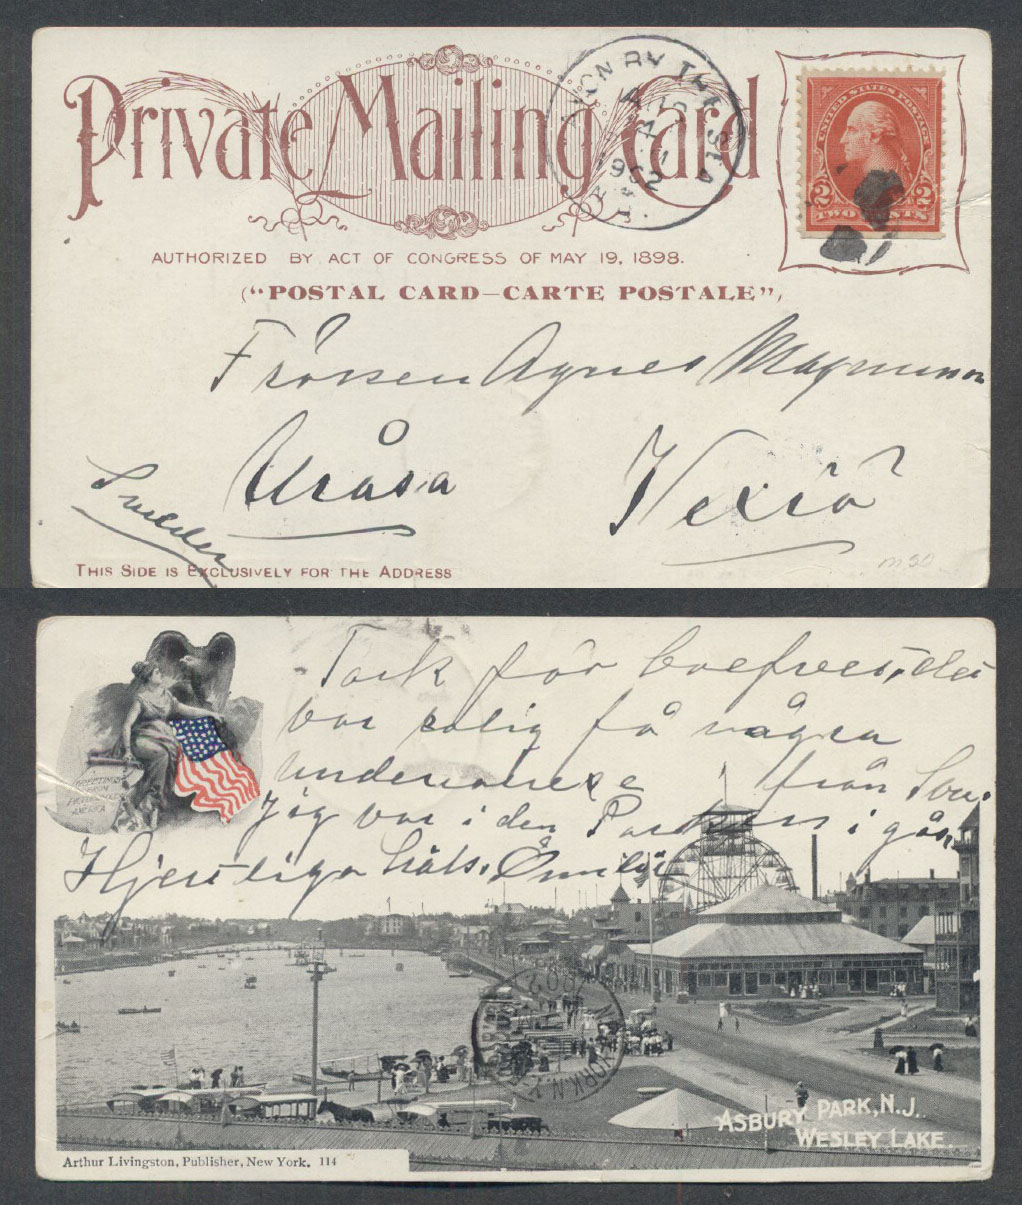 Private Mailing Card
AUTHORIZED BY ACT OF CONGRESS OF MAY 19, 1898.
("POSTAL CARD—CARTE POSTALE",
BY THE SEA
1902
UNITED STATES POSTAGE
2 2
TWO CENTS
Fröken Agnes Magnusson
Uråsa Vexiö
Sweden
THIS SIDE IS EXCLUSIVELY FOR THE ADDRESS
m50
GREETINGS
FROM
PICTURESQUE
AMERICA
Tack för brefvet, det
var rolig få några
underrättelse från
Jag var i den Parken i går,
Hjertliga häls.
1902
YORK, N.Y.
ASBURY PARK, N.J.
WESLEY LAKE
Arthur Livingston, Publisher, New York. 114